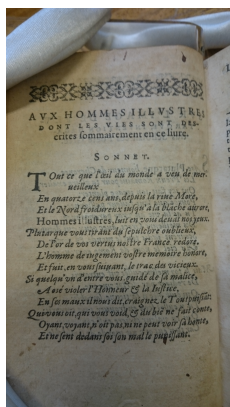 AVX HOMMES ILLVSTRES
DONT LES VIES SONT DES-
crites sommairement en ce liure.
SONNET.
Tout ce que l'œil du monde a veu de mer
ueilleux
En quatorze cens ans, depuis la riue More,
Et le Nord froidureux iusqu'à la blāche aurore,
Hommes illustres, luit en vous deuāt noz yeux.
Plutarque vous tirant du sepulchre oublieux,
De l'or de voz vertus nostre France redore,
L'homme de iugement vostre memoire honore,
Et fuit, en vous suyuant, le trac des vicieux.
Si quelqu'un d'entre vous, guidé de sa malice,
A osé violer l'Honneur & la Iustice,
En soi maux il nous dit, craignez le Tout puissāt:
Qui vous oit, qui vous void, & du biē ne fait conte,
Oyant, voyant, n'oit pas, ni ne peut voir sa honte,
Et ne sent dedans soi son mal le punissant.